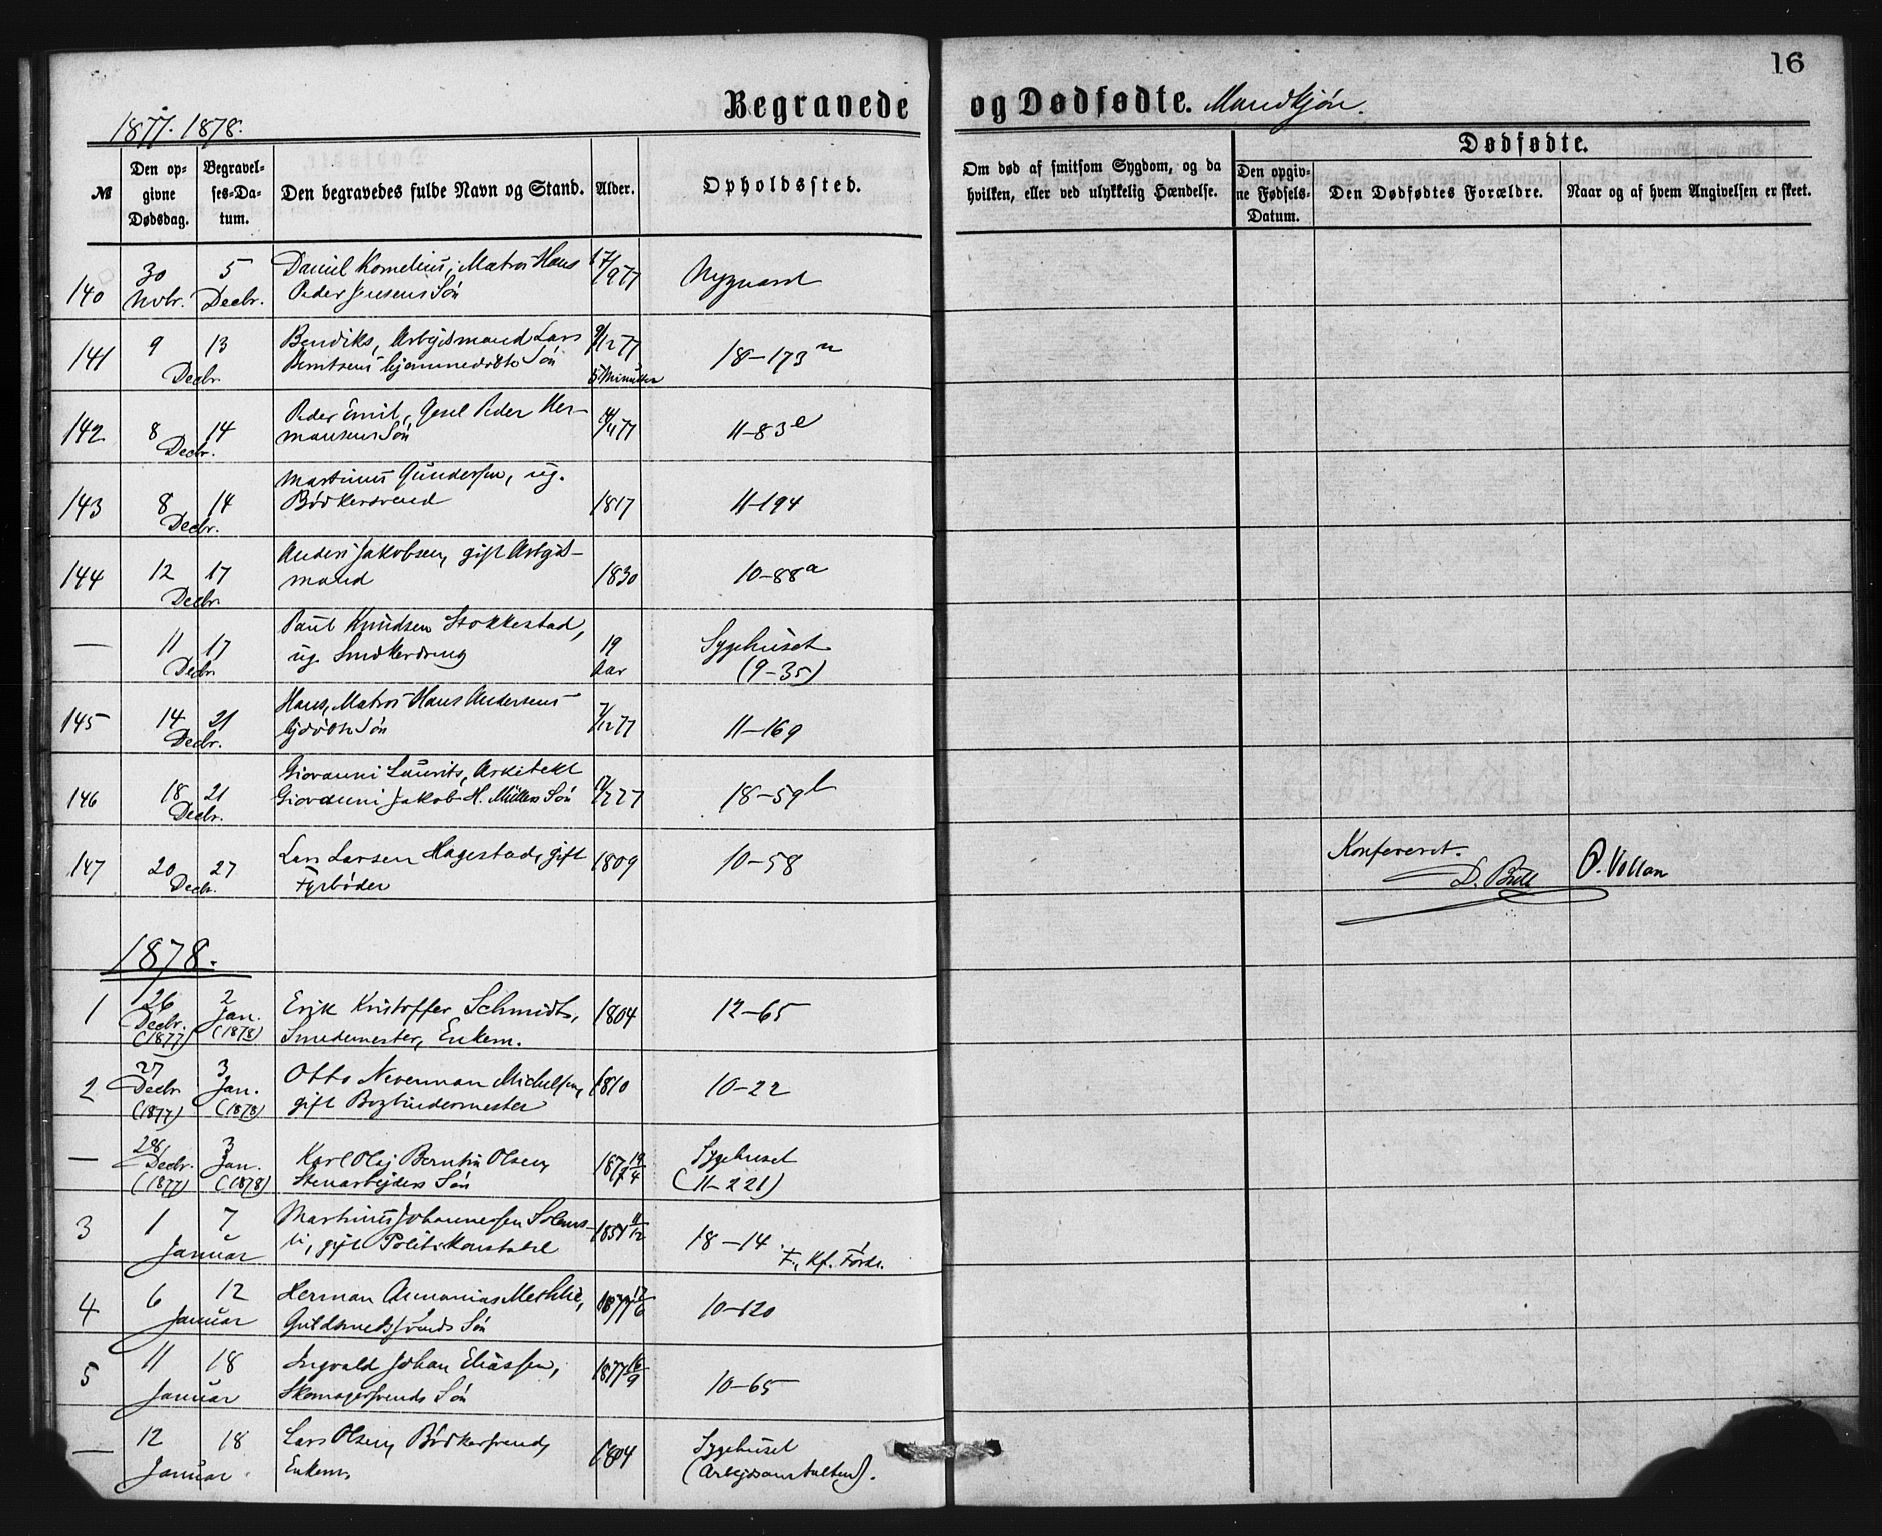 16
Begravede og Dødfødte. Mandkjøn.
1877. 1878.
№
Den opgivne Dødsdag.
Begravelses-Datum.
Den begravedes fulde Navn og Stand.
Alder.
Opholdssted.
Om død af smitsom Sygdom, og da hvilken, eller ved ulykkelig Hændelse.
Dødfødte.
Den opgivne Fødsels-Datum.
Den Dødfødtes Forældre.
Naar og af hvem Angivelsen er skeet.
140 30 Novbr. 5 Decbr. Daniel Kornelius, Matros Hans
Peder Jensens Søn 17/9 77 Nygaard
141 9 13 Decbr. Bendiks, Arbejdsmand Lars
Berntsens hjemmedøbte Søn 9/12 77 5 Minutter 18-173
142 8 14 Decbr. Peder Emil, Peder Her-
mansens Søn 14/11 77 11-83e
143 8 14 Decbr. Martinus Gundersen, ug.
Bødkersvend 1817 11-194
144 12 17 Decbr. Anders Jakobsen, gift Arbejds-
mand 1830 10-88a
— 11 17 Decbr. Paul Knudsen Stokkestad,
ug. Snedkerdreng 19 Aar Sygehuset
(9-35)
145 14 21 Decbr. Hans, Matros Hans Andersens
hjdøbte Søn 7/12 77 11-169
146 18 21 Decbr. Giovanni Laurits, Arkitekt
Giovanni Jakob H. Müllers Søn 18-59b
147 20 27 Decbr. Lars Larsen Hagestad, gift
Fyrbøder 1809 10-58
Konfereret.
D. Bull O. Vollan
1878.
1 26 Decbr. (1877) 2 Jan. (1878) Erik Kristoffer Schmidt,
Smedemester, Enkem. 1804 12-65
2 27 Decbr. (1877) 3 Jan. (1878) Otto Neverman Michelsen,
gift Bogbindermester 1810 10-22
— 28 Decbr. (1877) 3 Jan. (1878) Karl Olaj Berntin Olsen,
Stenarbejders Søn 1872 19/4 Sygehuset
(11-221)
3 1 7 Januar Martinus Johannessen Solems-
li, gift Politikonstabel 1851 11/12 18-14 F., Kf. Førde.
4 6 12 Januar Herman Ananias Methlie,
Guldsmedsvends Søn 1877 17/6 10-120
5 11 18 Januar Ingvald Johan Eliassen,
Skomagersvends Søn 1877 16/9 10-65
— 12 18 Januar. Lars Olsen, Bødkersvend,
Enkem. 1804 Sygehuset
(Arbejdsanstalten).